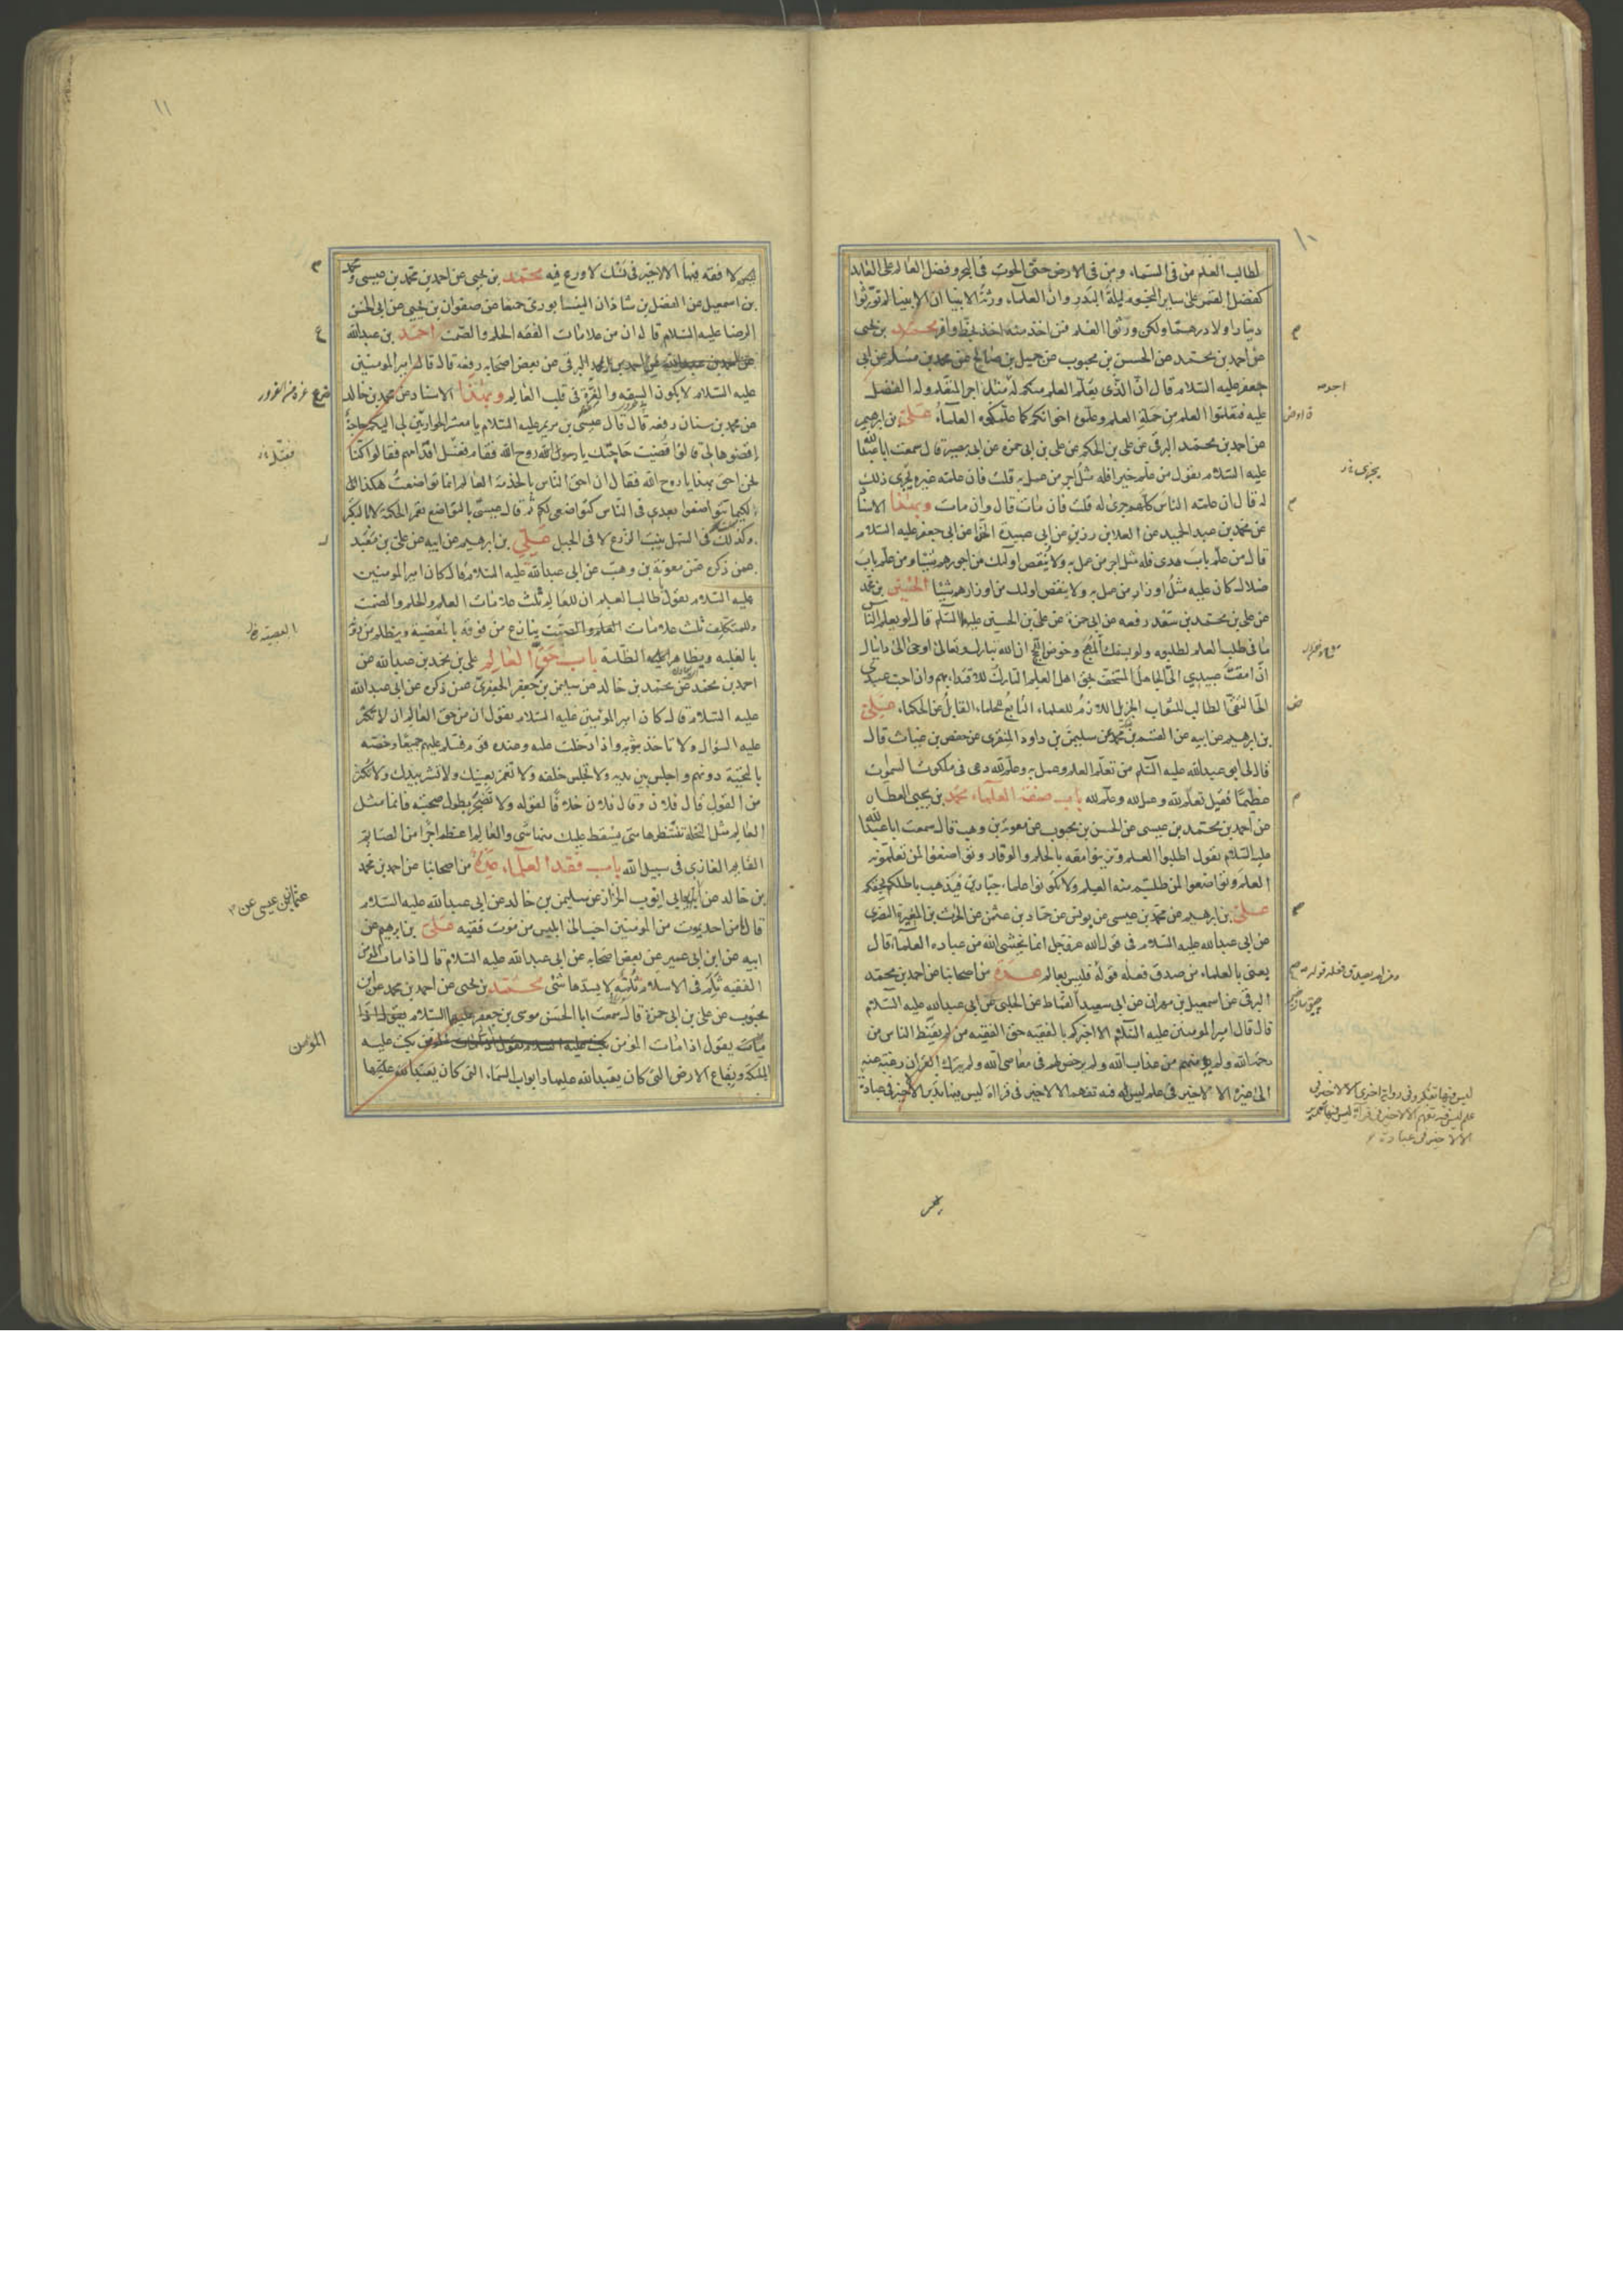 ١٠
لطالب العلم من في السماء ومن في الارض حتى الحوت في البحر وفضل العالم على العابد
كفضل القمر على ساير النجوم ليلة البدر وان العلماء ورثة الانبيا ان الانبيا لم تورثوا
دينارا ولا درهما ولكن ورثوا العلم فمن اخذ منه اخذ بحظ وافر محمد بن يحيى
عن احمد بن محمد عن الحسن بن محبوب عن جميل بن صالح عن محمد بن مسلم عن ابي
جعفر عليه السلام قال ان الذى يعلم العلم منكم له مثل اجر المتعلم وله الفضل
عليه فتعلموا العلم من حملة العلم وعلموه اخوانكم كما علمكموه العلماء على بن ابرهيم
عن احمد بن محمد البرقى عن على بن الحكم عن على بن ابى حمزه عن ابى بصير قال سمعت ابا عبدالله
عليه السلام يقول من علم خيرا فله مثل اجر من عمل به قلت فان علمه غيره يجرى ذلك
له قال ان علمه الناس كلهم جرى له قلت فان مات قال وان مات وبهذا الاسناد
عن محمد بن عبد الحميد عن العلا بن رزين عن ابى عبيدة الحذا عن ابى جعفر عليه السلام
قال من علم باب هدى فله مثل اجر من عمل به ولا ينقص اولئك من اجورهم شيئا ومن علم باب
ضلال كان عليه مثل اوزار من عمل به ولا ينقص اولئك من اوزارهم شيئا الحسين بن محمد
عن على بن محمد بن سعد رفعه عن ابى حمزة عن على بن الحسين عليه السلم قال لو يعلم الناس
ما فى طلب العلم لطلبوه ولو بسفك المهج وخوض اللجج ان الله تبارك وتعالى اوحى الى دانيال
ان امقت عبيدي الى الجاهل المستخف بحق اهل العلم التارك للاقتداء بهم وان احب عبيدي
الى التقى الطالب للثواب الجزيل اللازم للعلماء التابع للحلماء القابل عن الحكماء على
بن ابرهيم عن ابيه عن القسم بن محمد عن سليمن بن داود المنقرى عن حفص بن غياث قال
قال لى ابو عبدالله عليه السلم من تعلم العلم وعمل به وعلم لله دعى فى ملكوت السموت
عظيما فقيل تعلم لله وعمل لله وعلم لله باب صفة العلماء محمد بن يحيى العطار
عن احمد بن محمد بن عيسى عن الحسن بن محبوب عن معوية بن وهب قال سمعت ابا عبدالله
عليه السلام يقول اطلبوا العلم وتزينوا معه بالحلم والوقار وتواضعوا لمن تعلمونه
العلم وتواضعوا لمن طلبتم منه العلم ولا تكونوا علماء جبارين فيذهب باطلكم بحقكم
على بن ابرهيم عن محمد بن عيسى عن يونس عن حماد بن عثمن عن الحرث بن المغيرة النصرى
عن ابى عبدالله عليه السلام فى قول الله عز وجل انما يخشى الله من عباده العلماء قال
يعنى بالعلماء من صدق فعله قوله فليس بعالم عدة من اصحابنا عن احمد بن محمد
البرقى عن اسمعيل بن مهران عن ابى سعيد القماط عن الحلبى عن ابى عبدالله عليه السلام
قال قال امير المومنين عليه السلام الا اخبركم بالفقيه حق الفقيه من لم يقنط الناس من
رحمة الله ولم يومنهم من عذاب الله ولم يرخص لهم فى معاصى الله ولم يترك القران رغبة عنه
الى غيره الا لا خير فى علم ليس فيه تفهم الا لا خير فى قرااة ليس فيها تدبر الا لا خير فى عبادة
يجرى
ومن لم يصدق فعله قوله
ليس فيها تفكر وفى رواية اخرى الا لا خير فى
علم ليس فيه تفهم الا لا خير فى قراءة ليس فيها تدبر
الا لا خير فى عبادة
١١
لا فقه فيها الا لا خير فى نسك لا ورع فيه محمد بن يحيى عن احمد بن محمد بن عيسى ومحمد
بن اسمعيل عن الفضل بن شاذان النيسابورى جميعا عن صفوان بن يحيى عن ابى الحسن
الرضا عليه السلام قال ان من علامات الفقه الحلم والصمت احمد بن عبدالله
عن احمد بن محمد البرقى عن بعض اصحابه رفعه قال قال امير المومنين
عليه السلام لا يكون السفه والغرة فى قلب العالم وبهذا الاسناد عن محمد بن خالد
عن محمد بن سنان رفعه قال قال عيسى بن مريم عليه السلام يا معشر الحواريين لى اليكم حاجة
اقضوها لى قالوا قضيت حاجتك يا روح الله فقام فغسل اقدامهم فقالوا كنا
نحن احق بهذا يا روح الله فقال ان احق الناس بالخدمة العالم انما تواضعت هكذا
لكيما تتواضعوا بعدى فى الناس كتواضعى لكم ثم قال عيسى بالتواضع تعمر الحكمة لا بالتكبر
وكذلك فى السهل ينبت الزرع لا فى الجبل على بن ابرهيم عن ابيه عن على بن معبد
عمن ذكره عن معوية بن وهب عن ابى عبدالله عليه السلام قال كان امير المومنين
عليه السلام يقول يا طالب العلم ان للعالم ثلث علامات العلم والحلم والصمت
وللمتكلف ثلث علامات ينازع من فوقه بالمعصية ويظلم من دونه
بالغلبه ويظاهر الظلمة باب حق العالم على بن محمد بن عبدالله عن
احمد بن محمد عن محمد بن خالد عن سليمن بن جعفر الجعفرى عمن ذكره عن ابى عبدالله
عليه السلام قال كان امير المومنين عليه السلام يقول ان من حق العالم ان لا تكثر
عليه السؤال ولا تاخذ بثوبه واذا دخلت عليه وعنده قوم فسلم عليهم جميعا وخصه
بالتحية دونهم واجلس بين يديه ولا تجلس خلفه ولا تغمز بعينك ولا تشر بيدك ولا تكثر
من القول قال فلان وقال فلان خلافا لقوله ولا تضجر بطول صحبته فانما مثل
العالم مثل النخله تنتظرها متى يسقط عليك منها شى والعالم اعظم اجرا من الصايم
القايم الغازى فى سبيل الله باب فقد العلماء عدة من اصحابنا عن احمد بن محمد
بن خالد عن ابى ايوب الخزاز عن سليمن بن خالد عن ابى عبدالله عليه السلام
قال ما من احد يموت من المومنين احب الى ابليس من موت فقيه على بن ابرهيم عن
ابيه عن ابن ابى عمير عن بعض اصحابه عن ابى عبدالله عليه السلام قال اذا مات المومن
الفقيه ثلم فى الاسلام ثلمة لا يسدها شئ محمد بن يحيى عن احمد بن محمد عن ابن
محبوب عن على بن ابى حمزة قال سمعت ابا الحسن موسى بن جعفر عليهما السلام
يقول اذا مات المومن بكت عليه
الملئكة وبقاع الارض التى كان يعبدالله عليها وابواب السماء التى كان يصعد
عثمان بن عيسى عن
المومن